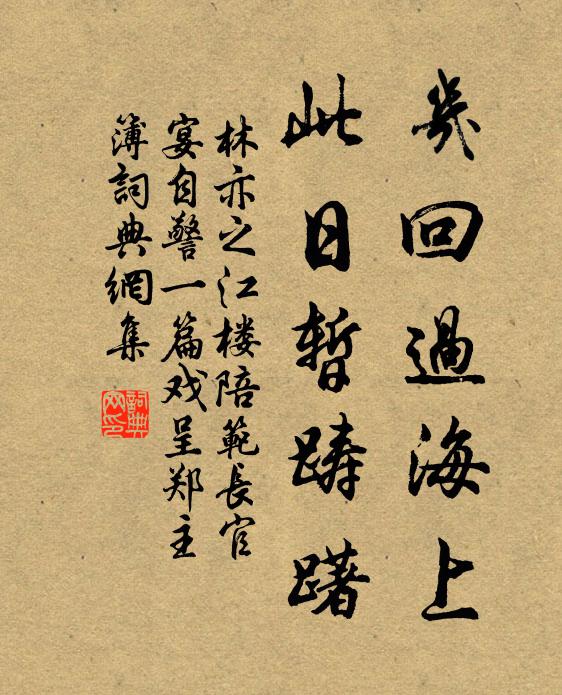 幾回過海上
此日暫踌躇
林亦之江楼陪範長官
宴自警一篇戏呈郑主
簿詞典網集
詞典
网印